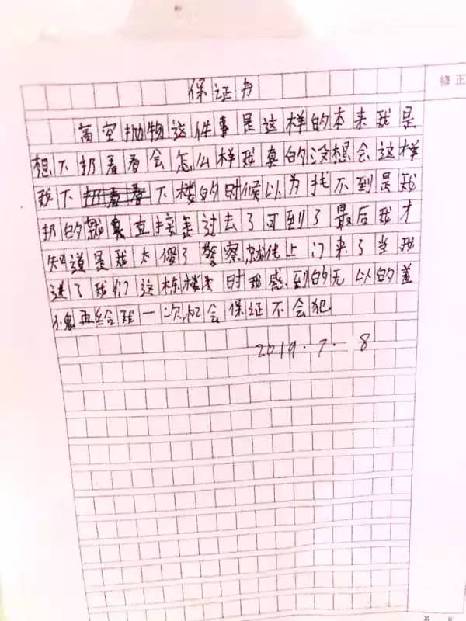 保证书
高空抛物这件事是这样的本来我是
想下扔着看会怎么样我真的没想会这样
我下楼的时候以为找不到是我
扔的就直接走过去了可到了最后我才
知道是我太傻了警察就找上门来了当我
进了我们这栋楼时我感到的无以的羞
愧再给我一次机会保证不会犯
2019.7.8
修正